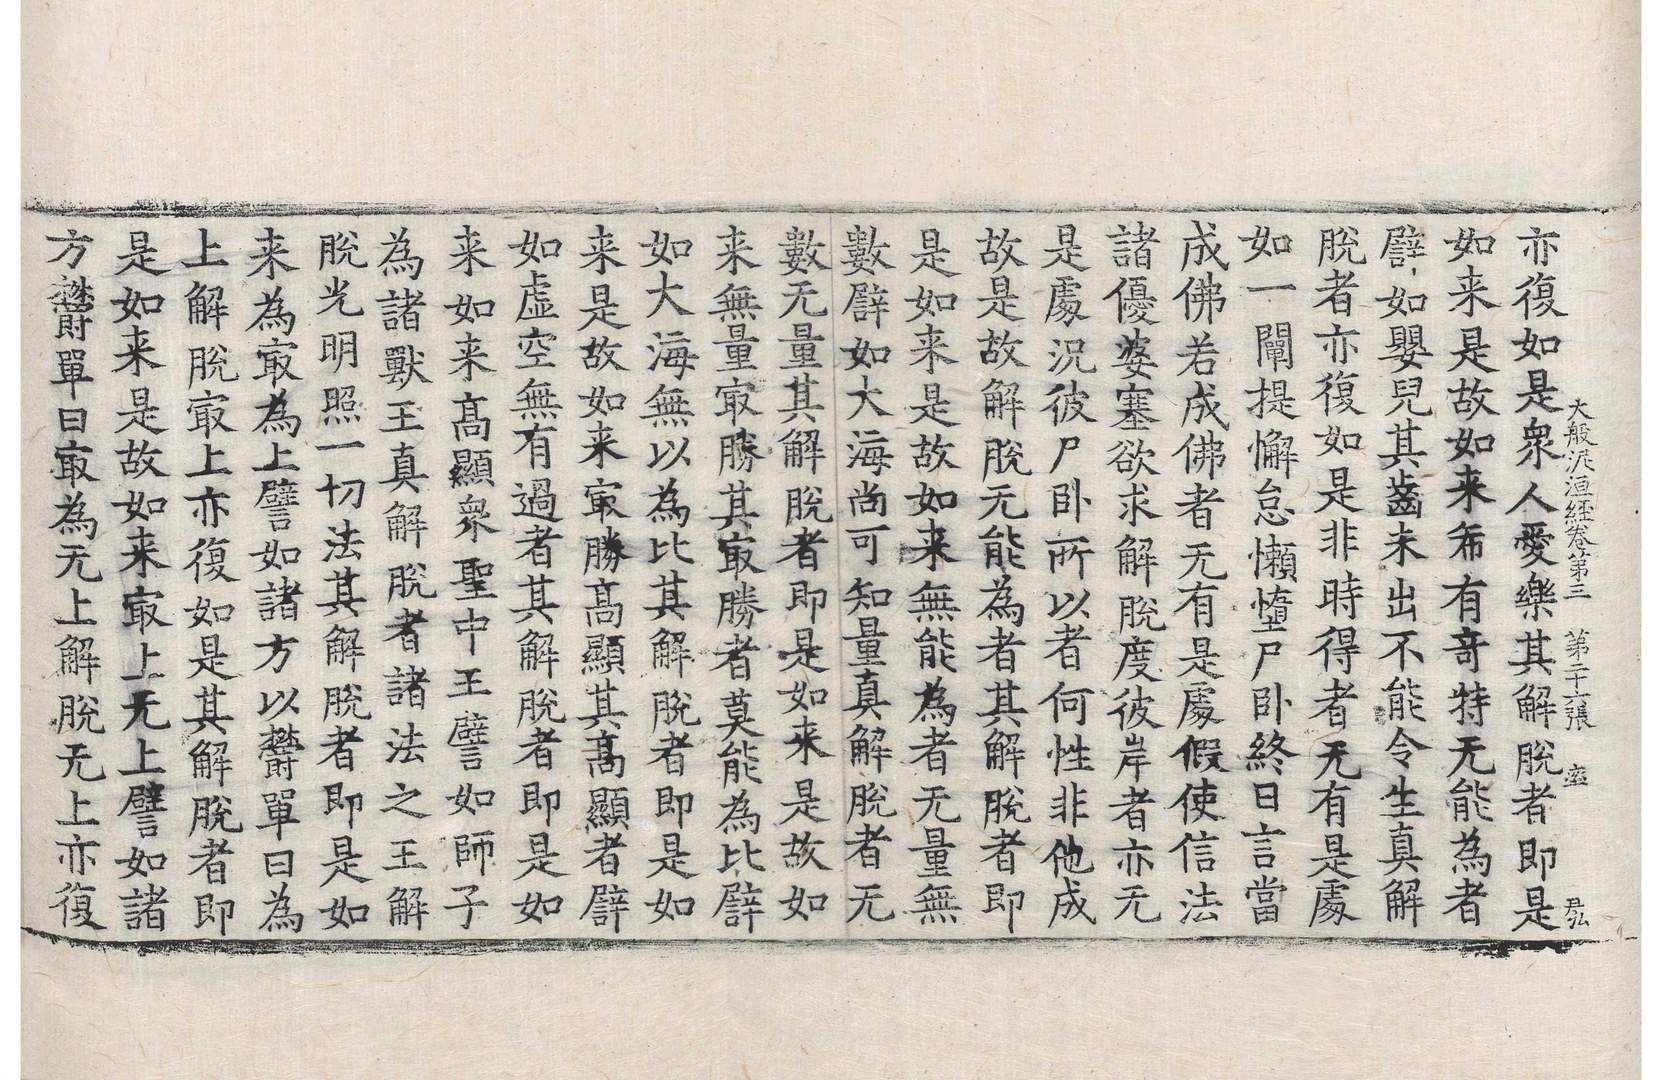 大般泥洹経卷第三 第二十六張
亦復如是衆人愛樂其解脫者即是
如来是故如来希有奇特无能為者
譬如嬰兒其齒未出不能令生真解
脫者亦復如是非時得者无有是處
如一闡提懈怠懶墮尸卧終日言當
成佛若成佛者无有是處假使信法
諸優婆塞欲求解脫度彼岸者亦无
是處況彼尸卧所以者何性非他成
故是故解脫无能為者其解脫者即
是如来是故如来無能為者无量無
數譬如大海尚可知量真解脫者无
數无量其解脫者即是如来是故如
来無量㝡勝其㝡勝者莫能為比譬
如大海無以為比其解脫者即是如
来是故如来㝡勝髙顯其髙顯者譬
如虛空無有過者其解脫者即是如
来如来髙顯衆聖中王譬如師子
為諸獸王真解脫者諸法之王解
脫光明照一切法其解脫者即是如
来為㝡為上譬如諸方以欝單曰為
上解脫㝡上亦復如是其解脫者即
是如来是故如来㝡上无上譬如諸
方欝單曰㝡為无上解脫无上亦復